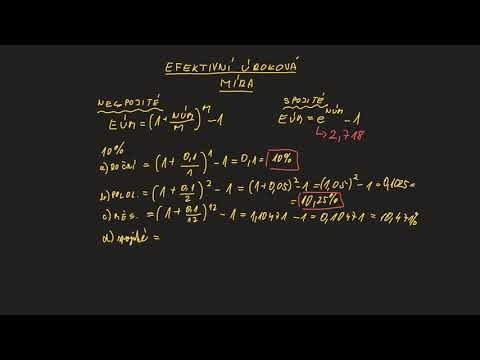 EFEKTIVNÍ ÚROKOVÁ
MÍRA
NESPOJITÉ
EÚM = (1 + NÚM/M)^M - 1
SPOJITÉ
EÚM = e^NÚM - 1
↳ 2,718
10%
a) ROČNÍ = (1 + 0,1/1)^1 - 1 = 0,1 = 10%
b) POLOL. = (1 + 0,1/2)^2 - 1 = (1+0,05)^2 - 1 = (1,05)^2 - 1 = 0,1025 =
= 10,25%
c) MĚS. = (1 + 0,1/12)^12 - 1 = 1,10471 - 1 = 0,10471 = 10,471%
d) spojité =